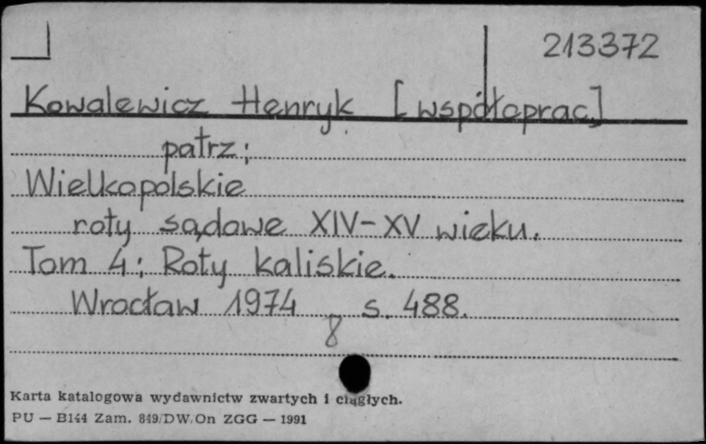 213372
Kowalewicz Henryk [współoprac.]
patrz:
Wielkopolskie
roty sądowe XIV-XV wieku.
Tom 4: Roty kaliskie.
Wrocław 1974 s. 488.
8
Karta katalogowa wydawnictw zwartych i ciągłych.
PU — B144 Zam. 849/DW/On ZGG — 1991